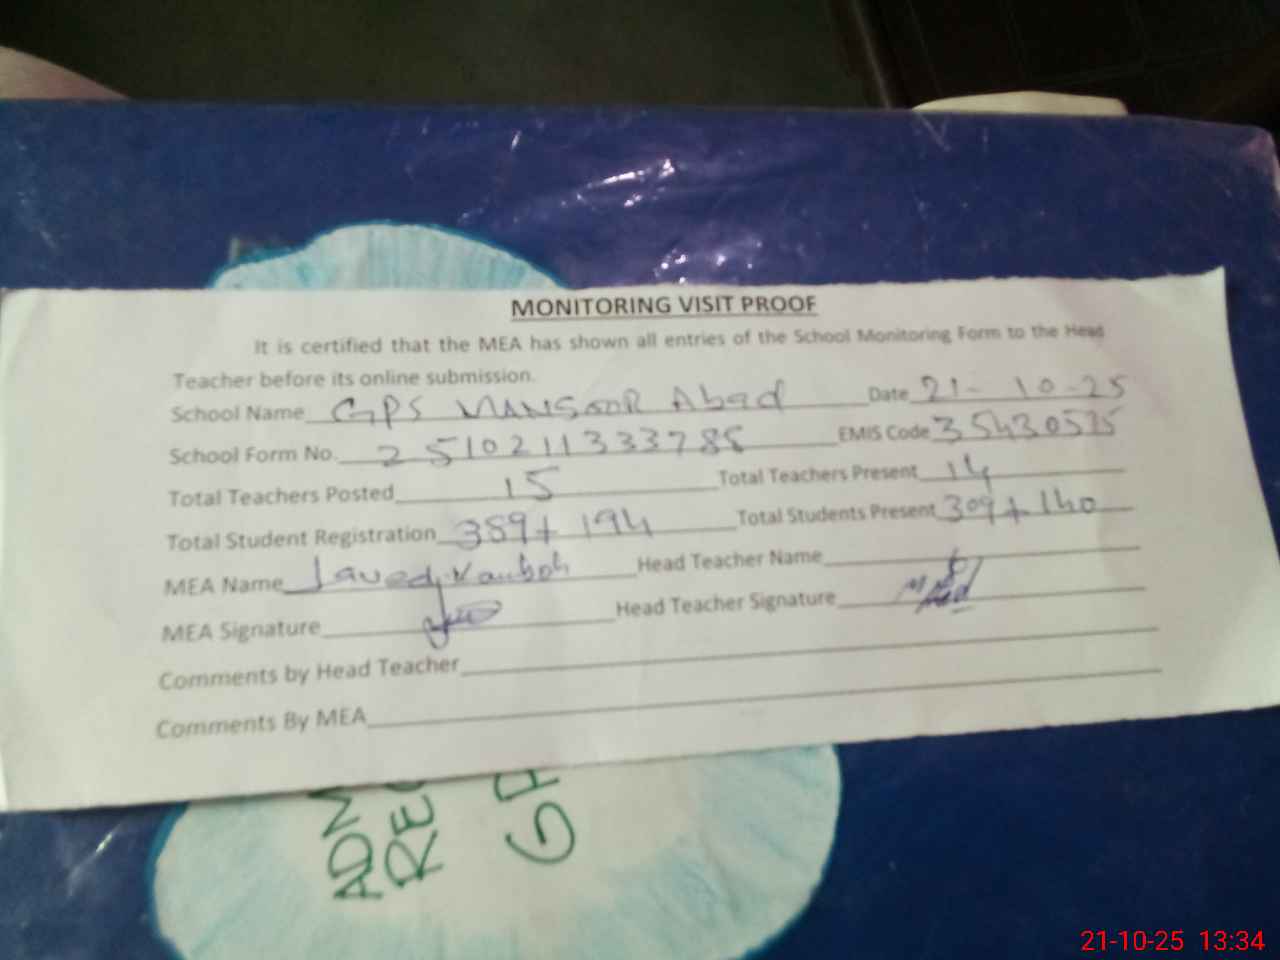 MONITORING VISIT PROOF
It is certified that the MEA has shown all entries of the School Monitoring Form to the Head
Teacher before its online submission.
School Name GPS MANSOOR Abad Date 21-10-25
School Form No. 2510211333788 EMIS Code 35430575
Total Teachers Posted 15 Total Teachers Present 14
Total Student Registration 389+194 Total Students Present 309+140
MEA Name Javed Kamboh Head Teacher Name
MEA Signature Head Teacher Signature
Comments by Head Teacher
Comments By MEA
ADM
REG
GP
21-10-25 13:34